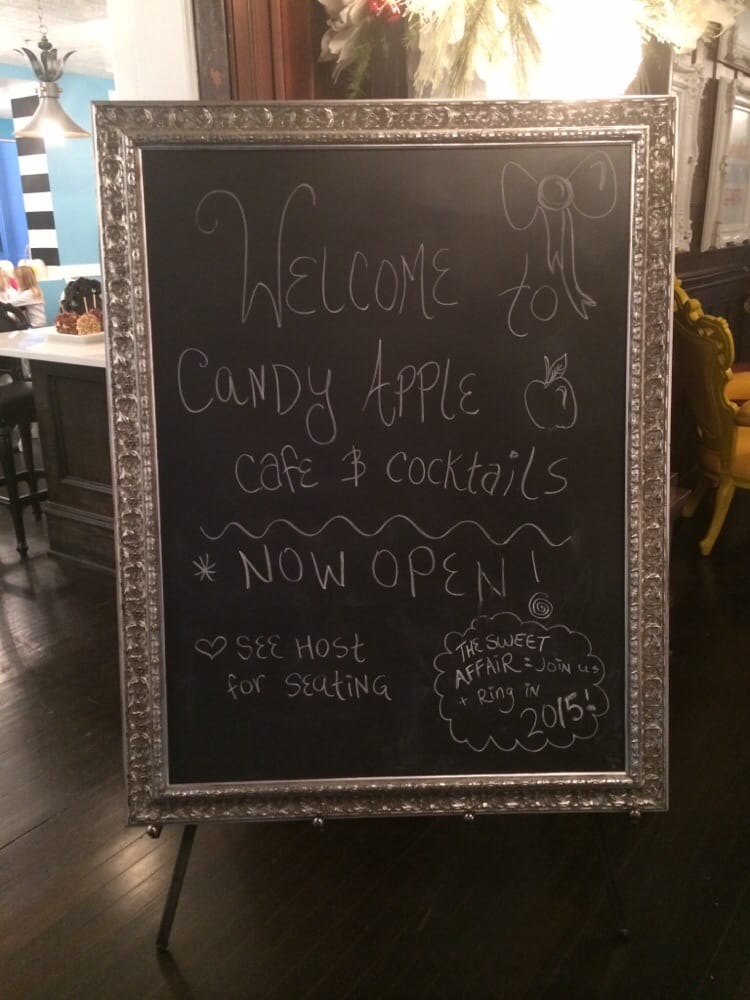 Welcome to
Candy Apple
cafe & cocktails
* NOW OPEN!
♡ SEE HOST
for SEATING
THE SWEET
AFFAIR = JOIN US
+ Ring in
2015!